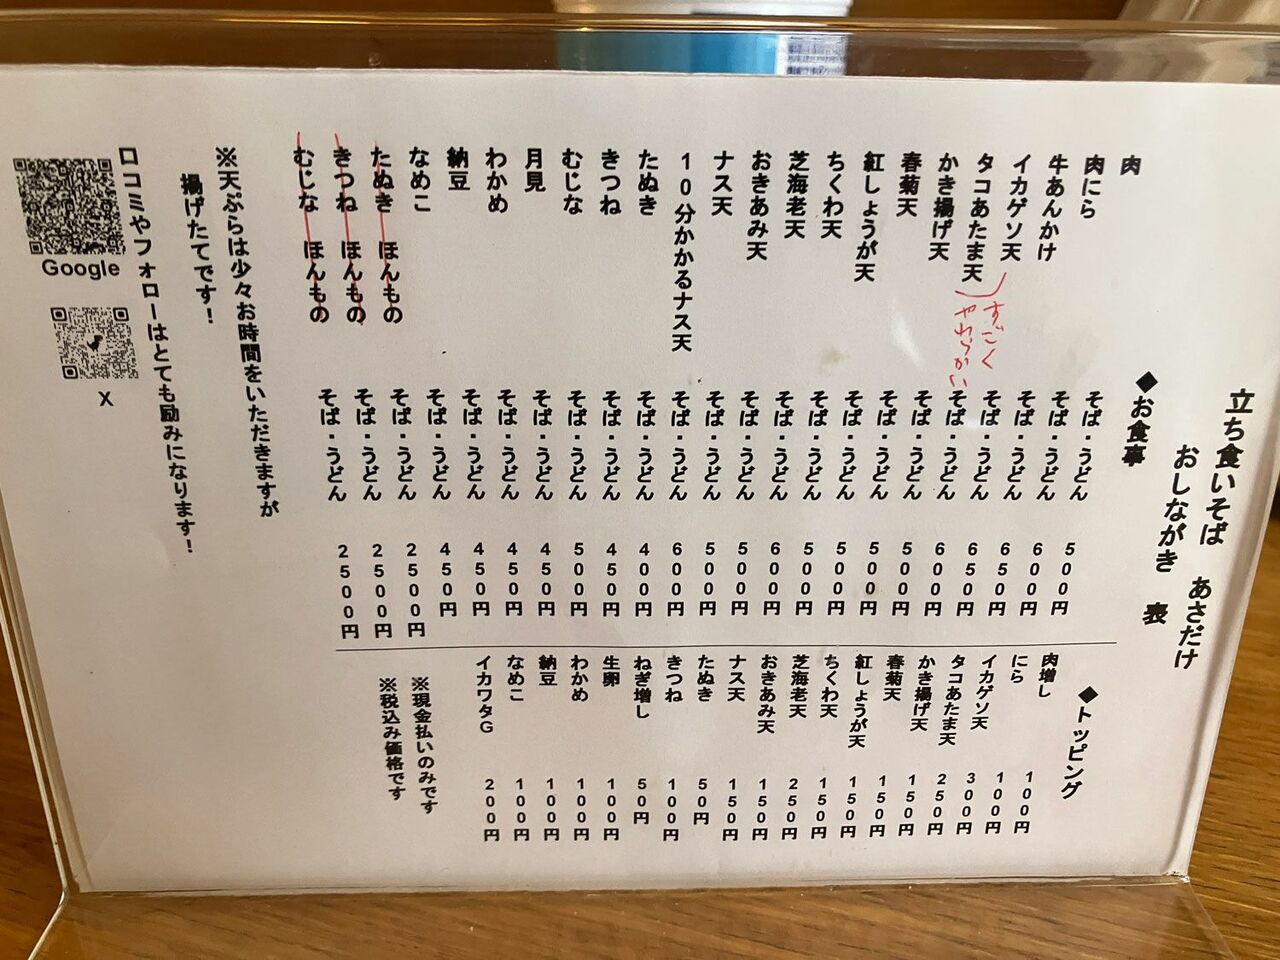 立ち食いそば あさだけ
おしながき 表
◆お食事
肉 そば・うどん 500円
肉にら そば・うどん 600円
牛あんかけ そば・うどん 650円
イカゲソ天 そば・うどん 650円
タコあたま天 そば・うどん 600円
すごく
やわらかい
かき揚げ天 そば・うどん 500円
春菊天 そば・うどん 500円
紅しょうが天 そば・うどん 500円
ちくわ天 そば・うどん 500円
芝海老天 そば・うどん 600円
おきあみ天 そば・うどん 500円
ナス天 そば・うどん 500円
10分かかるナス天 そば・うどん 600円
たぬき そば・うどん 400円
きつね そば・うどん 450円
むじな そば・うどん 500円
月見 そば・うどん 450円
わかめ そば・うどん 450円
納豆 そば・うどん 450円
なめこ そば・うどん 450円
たぬき ほんもの そば・うどん 2500円
きつね ほんもの そば・うどん 2500円
むじな ほんもの そば・うどん 2500円
◆トッピング
肉増し 100円
にら 100円
イカゲソ天 300円
タコあたま天 250円
かき揚げ天 150円
春菊天 150円
紅しょうが天 150円
ちくわ天 150円
芝海老天 250円
おきあみ天 150円
ナス天 150円
たぬき 50円
きつね 100円
ねぎ増し 50円
生卵 100円
わかめ 100円
納豆 100円
なめこ 100円
イカワタG 200円
※現金払いのみです
※税込み価格です
※天ぷらは少々お時間をいただきますが
揚げたてです!
口コミやフォローはとても励みになります!
Google
X